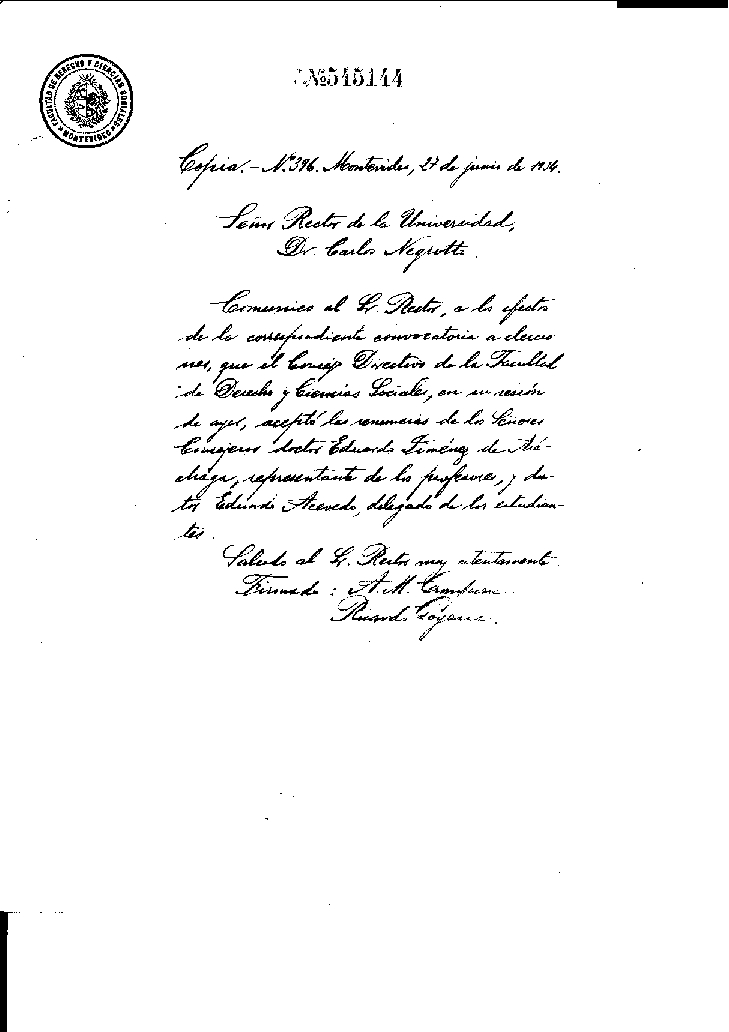 FACULTAD DE DERECHO Y CIENCIAS SOCIALES
MONTEVIDEO
Nº545144
Copia.- Nº.396. Montevideo, 27 de junio de 1934.
Señor Rector de la Universidad,
Dr. Carlos Negrotto.
Comunico al Sr. Rector, a los efectos
de la correspondiente convocatoria a eleccio
nes, que el Consejo Directivo de la Facultad
de Derecho y Ciencias Sociales, en su sesión
de ayer, aceptó las renuncias de los Señores
Consejeros doctor Eduardo Jiménez de Aré-
chaga, representante de los profesores, y doc-
tor Edmundo Acevedo, delegado de los estudian-
tes.
Saludo al Sr. Rector muy atentamente.
Firmado: A. M.
Ricardo Goyena.